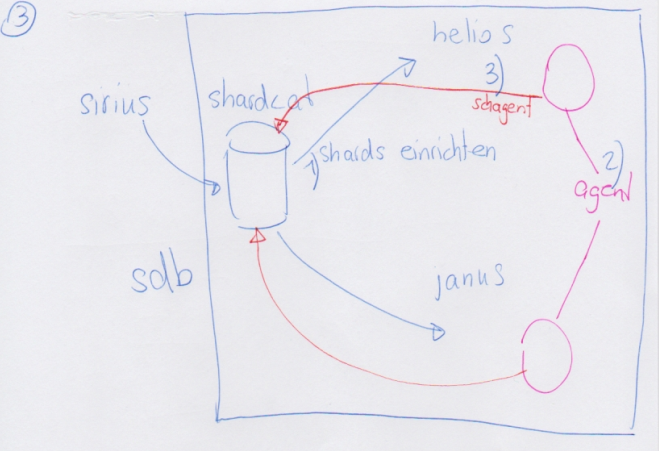 3
helios
sirius
shardcat
3)
schagent
1) shards einrichten
2)
agent
sdb
janus